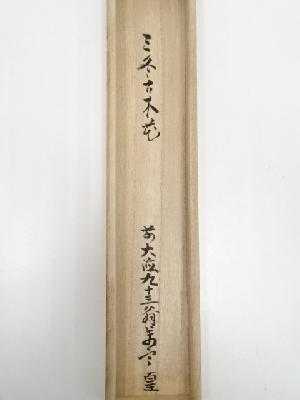 三冬古木花
前大徳九十三翁